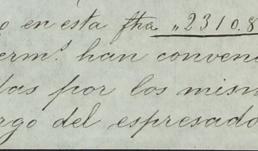 o en esta fha „2310.8
erm.s han conven
das por los mism
rgo del espresado